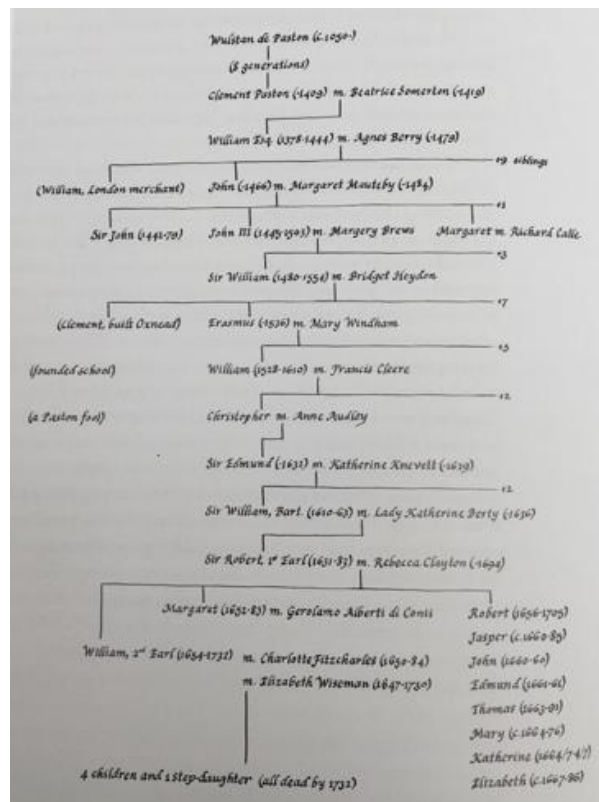 Wulstan de Paston (c.1050-)
(8 generations)
Clement Paston (-1409) m. Beatrice Somerton (-1419)
William Esq. (1378-1444) m. Agnes Berry (-1479)
+9 siblings
(William, London merchant) John (-1466) m. Margaret Mauteby (-1484)
Sir John (1441-79) John III (1445-1503) m. Margery Brews Margaret m. Richard Calle
+3
Sir William (1480-1554) m. Bridget Heydon
+7
(Clement, built Oxnead) Erasmus (-1536) m. Mary Windham
(founded school) William (1528-1610) m. Francis Cleere
+2
(a Paston fool) Christopher m. Anne Audley
Sir Edmund (-1631) m. Katherine Knevett (-1619)
+2
Sir William, Bart. (1610-63) m. Lady Katherine Berty (-1636)
Sir Robert, 1st Earl (1631-83) m. Rebecca Clayton (-1694)
Margaret (1652-83) m. Gerolamo Alberti di Conti Robert (1656-1705)
Jasper (c.1660-85)
William, 2nd Earl (1654-1732) m. Charlotte Fitzcharles (1650-84) John (1660-60)
m. Elizabeth Wiseman (1647-1730) Edmund (1661-61)
Thomas (1663-91)
Mary (c.1664-76)
Katherine (1664/7-47)
4 children and 1 step-daughter (all dead by 1732) Elizabeth (c.1667-86)